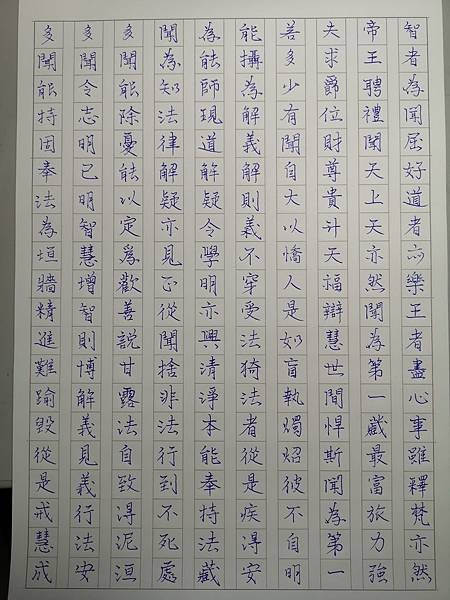 多聞能持固奉法為垣牆精進難踰毀從是戒慧成
多聞令志明已明智慧增智則博解義見義行法安
多聞能除憂能以定為歡善說甘露法自致得泥洹
聞為知法律解疑亦見正從聞捨非法行到不死處
為能師現道解疑令學明亦興清淨本能奉持法藏
能攝為解義解則義不穿受法猗法者從是疾得安
善多少有聞自大以憍人是如盲執燭炤彼不自明
夫求爵位財尊貴升天福辯慧世間悍斯聞為第一
帝王聘禮聞天上天亦然聞為第一藏最富旅力強
智者為聞屈好道者亦樂王者盡心事雖釋梵亦然